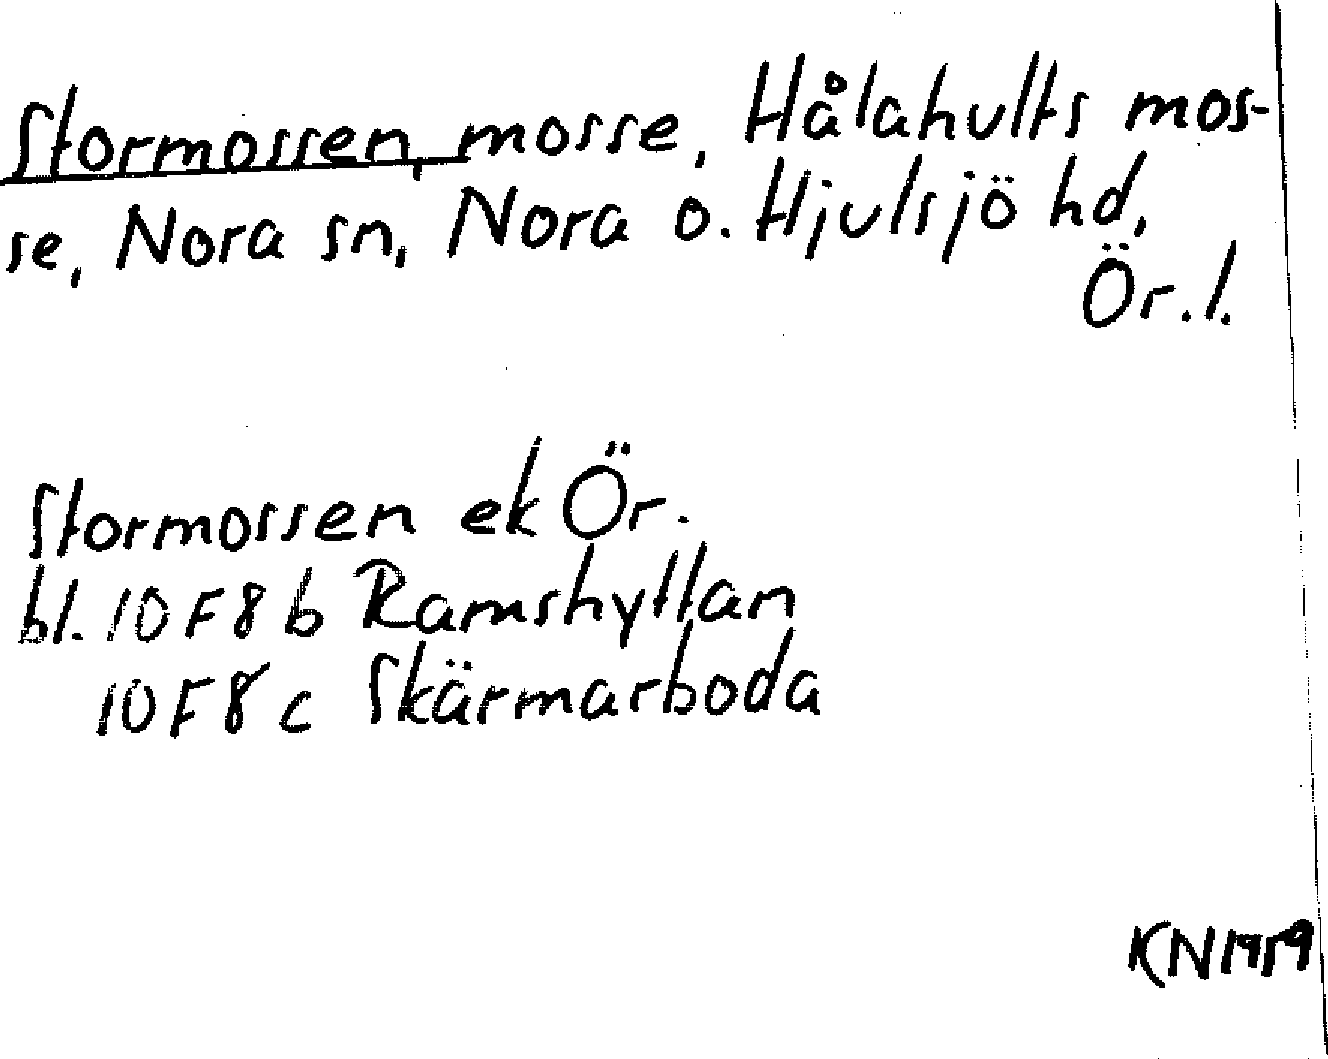 Stormossen, mosse, Hålahults mos-
se, Nora sn, Nora o. Hjulsjö hd,
Ör. l.
Stormossen ek Ör.
bl. 10F8b Ramshyttan
10F8c Skärmarboda
KN 1959